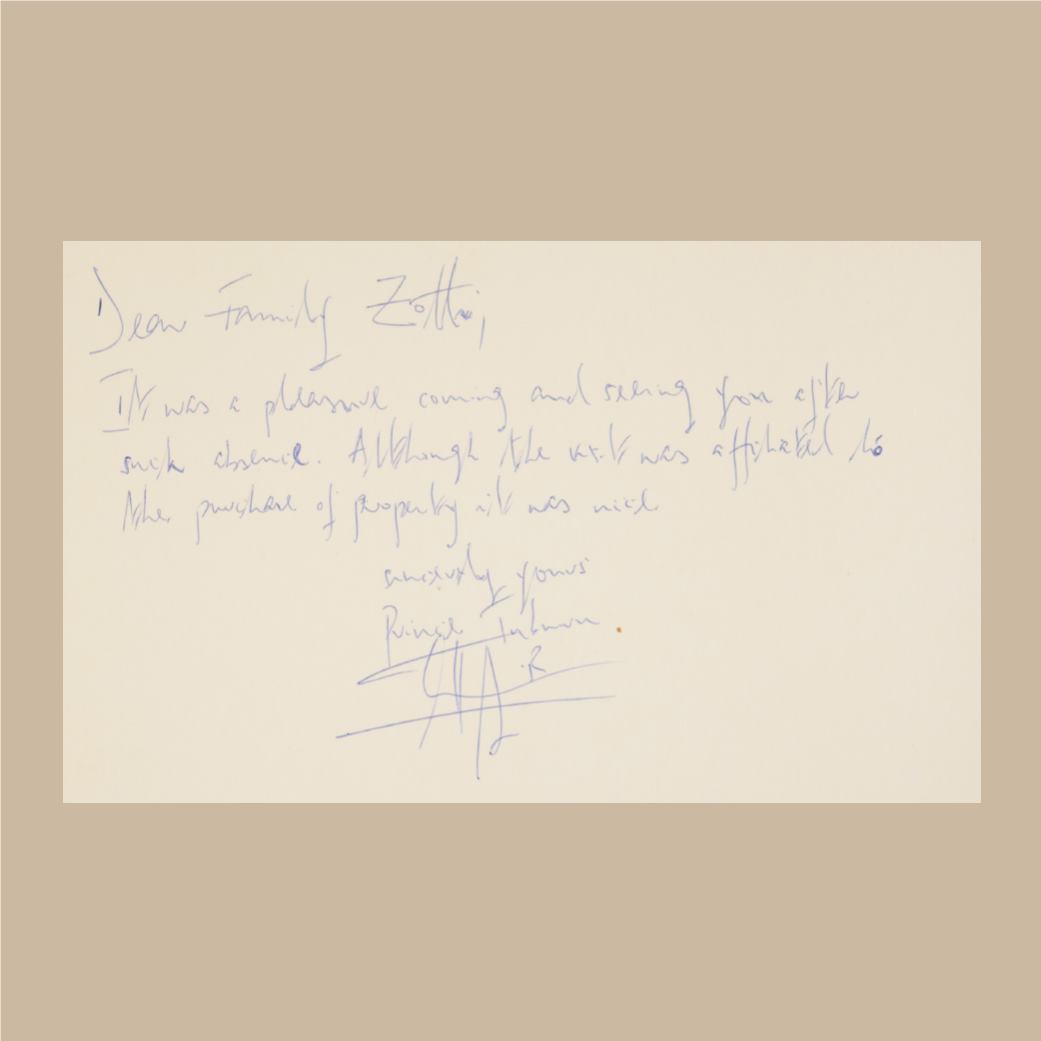 Dear Family Zotti,
It was a pleasure coming and seeing you after
such absence. Although the visit was affiliated to
the purchase of property it was nice
sincerely yours
Prince
R